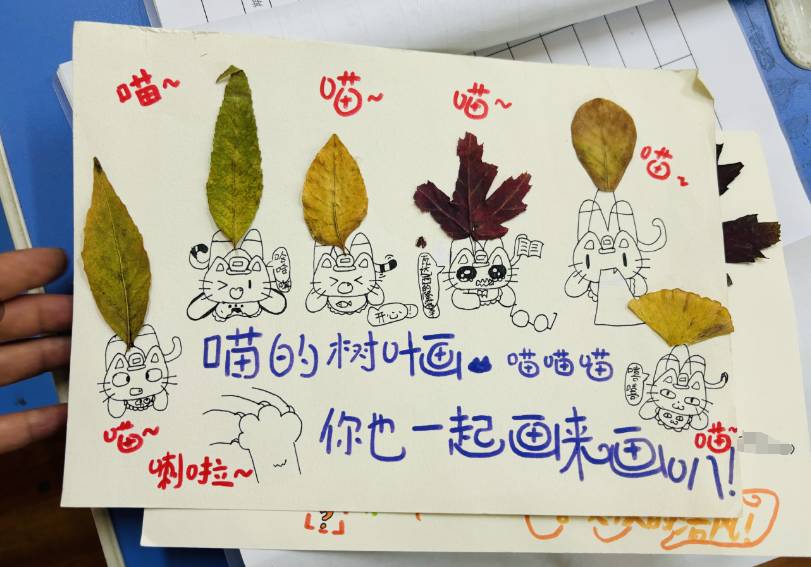 喵~
喵~
喵~
喵~
哈哈哈
开心!
喵的树叶画 喵喵喵
喵~
喵~
你也一起画来画叭!
喇啦~